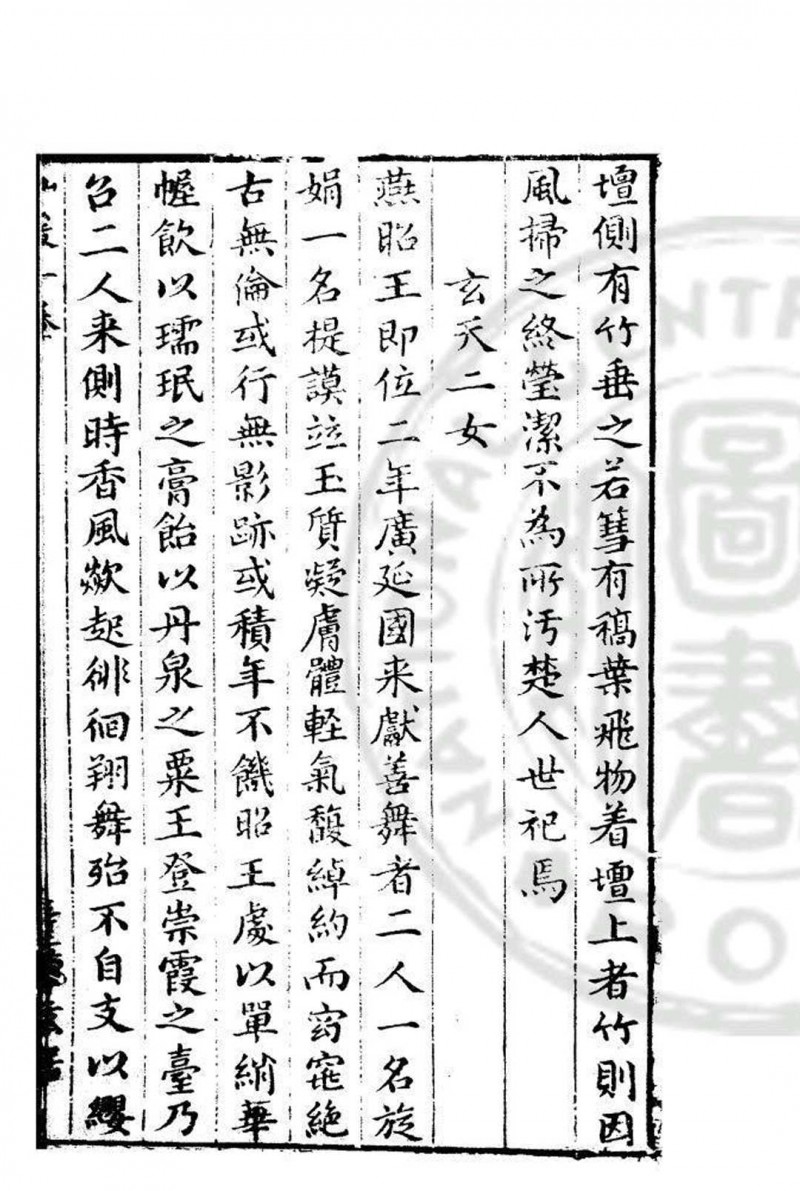 壇側有竹垂之若篲有稿葉飛物着壇上者竹則因
風掃之終瑩潔不為所汚楚人世祀焉
玄天二女
燕昭王即位二年廣延國来獻善舞者二人一名旋
娟一名提謨竝玉質凝膚體軽氣馥綽約而窈窕絶
古無倫或行無影跡或積年不饑昭王處以單綃華
幄飲以瓀珉之膏飴以丹泉之粟王登崇霞之臺乃
召二人来側時香風歘起徘徊翔舞殆不自支以纓
圖書